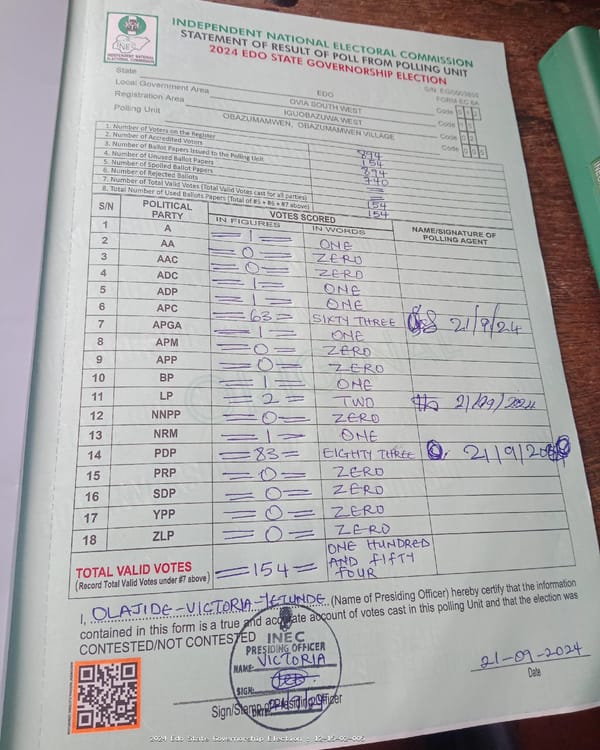 INDEPENDENT NATIONAL ELECTORAL COMMISSION
STATEMENT OF RESULT OF POLL FROM POLLING UNIT
2024 EDO STATE GOVERNORSHIP ELECTION
INEC
INDEPENDENT NATIONAL ELECTORAL COMMISSION
FORM EC 8A
State EDO Code 012
Local Government Area OVIA SOUTH WEST Code
Registration Area IGUOBAZUWA WEST Code 02
Polling Unit OBAZUMAMWEN, OBAZUMAMWEN VILLAGE Code
1. Number of Voters on the Register 894
2. Number of Accredited Voters 154
3. Number of Ballot Papers Issued to the Polling Unit 894
4. Number of Unused Ballot Papers 740
5. Number of Spoiled Ballot Papers =
6. Number of Rejected Ballots =
7. Number of Total Valid Votes (Total Valid Votes cast for all parties) 154
8. Total Number of Used Ballots Papers (Total of #5 + #6 + #7 above) 154
S/N POLITICAL PARTY VOTES SCORED NAME/SIGNATURE OF POLLING AGENT
IN FIGURES IN WORDS
1 A =1= ONE
2 AA =0= ZERO
3 AAC =0= ZERO
4 ADC =1= ONE
5 ADP =1= ONE
6 APC =63= SIXTY THREE 21/9/24
7 APGA =1= ONE
8 APM =0= ZERO
9 APP =0= ZERO
10 BP =1= ONE
11 LP =2= TWO 21/09/2024
12 NNPP =0= ZERO
13 NRM =1= ONE
14 PDP =83= EIGHTY THREE 21/9/20
15 PRP =0= ZERO
16 SDP =0= ZERO
17 YPP =0= ZERO
18 ZLP =0= ZERO
TOTAL VALID VOTES =154= ONE HUNDRED AND FIFTY FOUR
(Record Total Valid Votes under #7 above)
I, OLAJIDE-VICTORIA-YETUNDE (Name of Presiding Officer) hereby certify that the information
contained in this form is a true and accurate account of votes cast in this polling Unit and that the election was
CONTESTED/NOT CONTESTED
INEC
PRESIDING OFFICER
NAME: VICTORIA
SIGN:
21/9/24
Sign/Stamp of Presiding Officer
21-09-2024
Date
2024 Edo State Governorship Election - 12-15-02-005